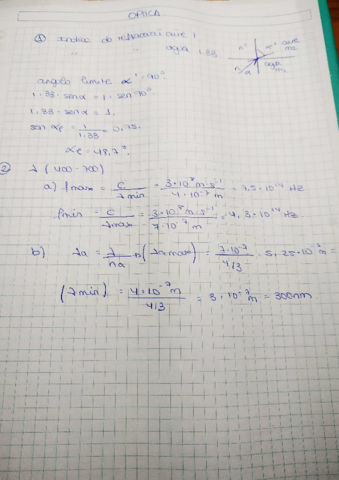 OPTICA
① indice de refraccion aire 1
" " agua 1.33
n' α' aire n2
n α agua n1
angulo limite α' = 90°
1.33 · sen α = 1 · sen 90°
1.33 · sen α = 1
sen αc = 1/1.33 = 0,75
αc = 48,7°
② λ (400-700)
a) f max = c/λmin = 3·10⁸ m·s⁻¹ / 4·10⁻⁷ m = 7,5·10¹⁴ Hz
f min = c/λmax = 3·10⁸ m·s⁻¹ / 7·10⁻⁷ m = 4,3·10¹⁴ Hz
b) λa = λ/na → (λa max) = 7·10⁻⁷ / 4/3 = 5,25·10⁻⁷ m =
(λ min) = 4·10⁻⁷ m / 4/3 = 3·10⁻⁷ m = 300nm